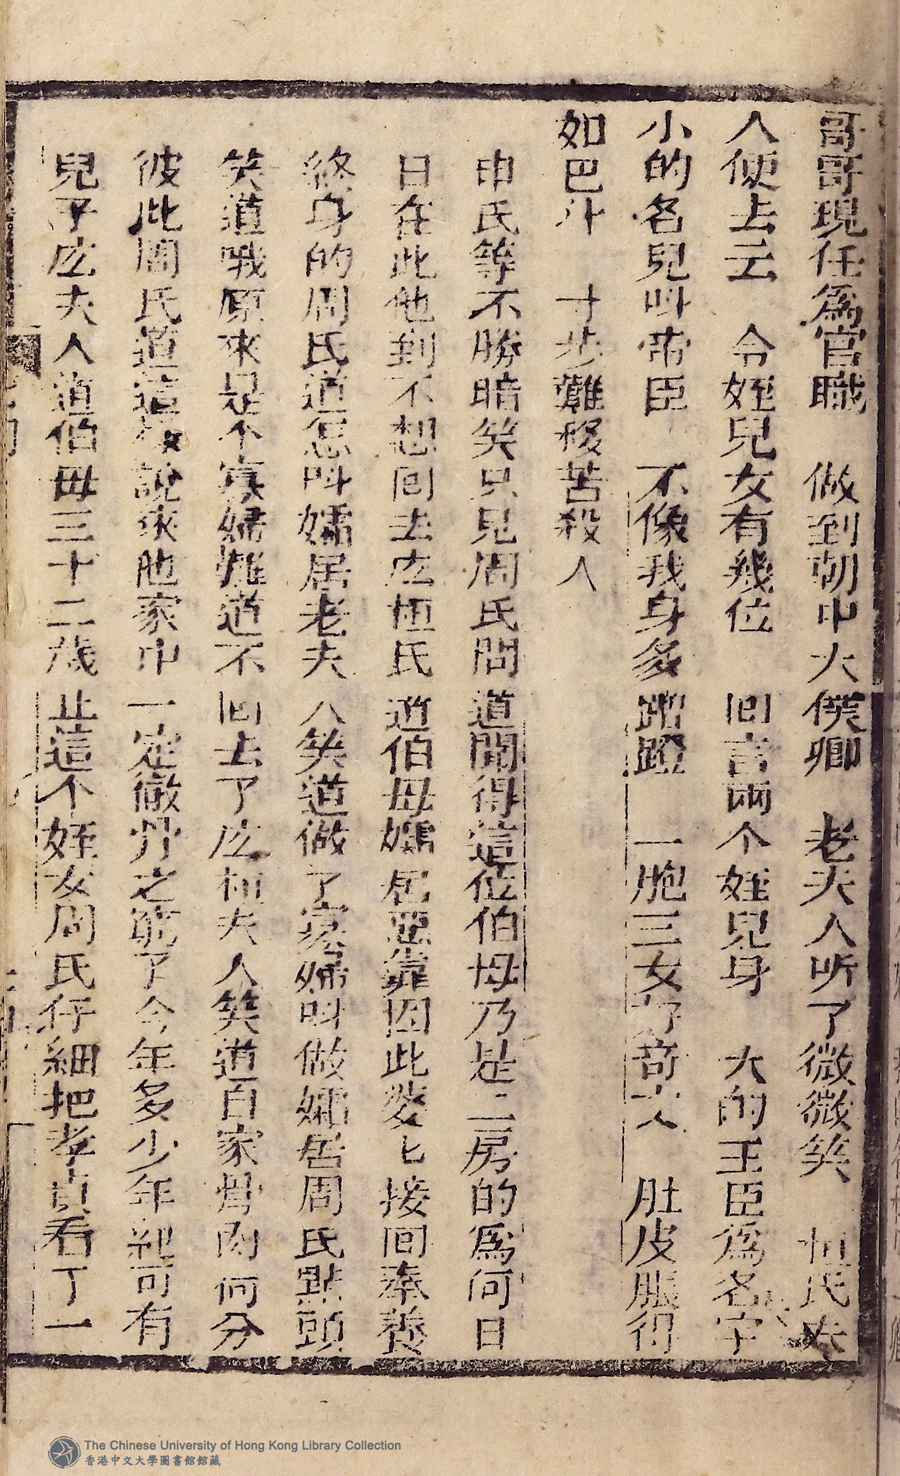 哥哥現任爲官職　做到朝中大僕卿　老夫人听了微微笑　恒氏夫
人便去云　令姪兒女有幾位　回言兩个姪兒身　大的王臣爲名字
小的名兒叫帝臣　不像我身多蹭蹬　一胞三女奇　肚皮脹得
如巴斗　寸步難移苦殺人
申氏等不勝暗笑只見周氏問道聞得這位伯母乃是二房的爲何日
日在此他到不想回去庅恒氏道伯母孀居惡靠因此婆匕接回奉養
終身的周氏道怎呌孀居老夫人笑道做了寡婦呌做孀居周氏點頭
笑道哦原來是个寡婦難道不回去了庅柏夫人笑道自家骨肉何分
彼此周氏道這樣說來他家中一定徹骨之窮了今年多少年紀可有
兒子庅夫人道伯母三十二歲止這个姪女周氏仔細把孝貞看了一
The Chinese University of Hong Kong Library Collection
香港中文大學圖書館館藏